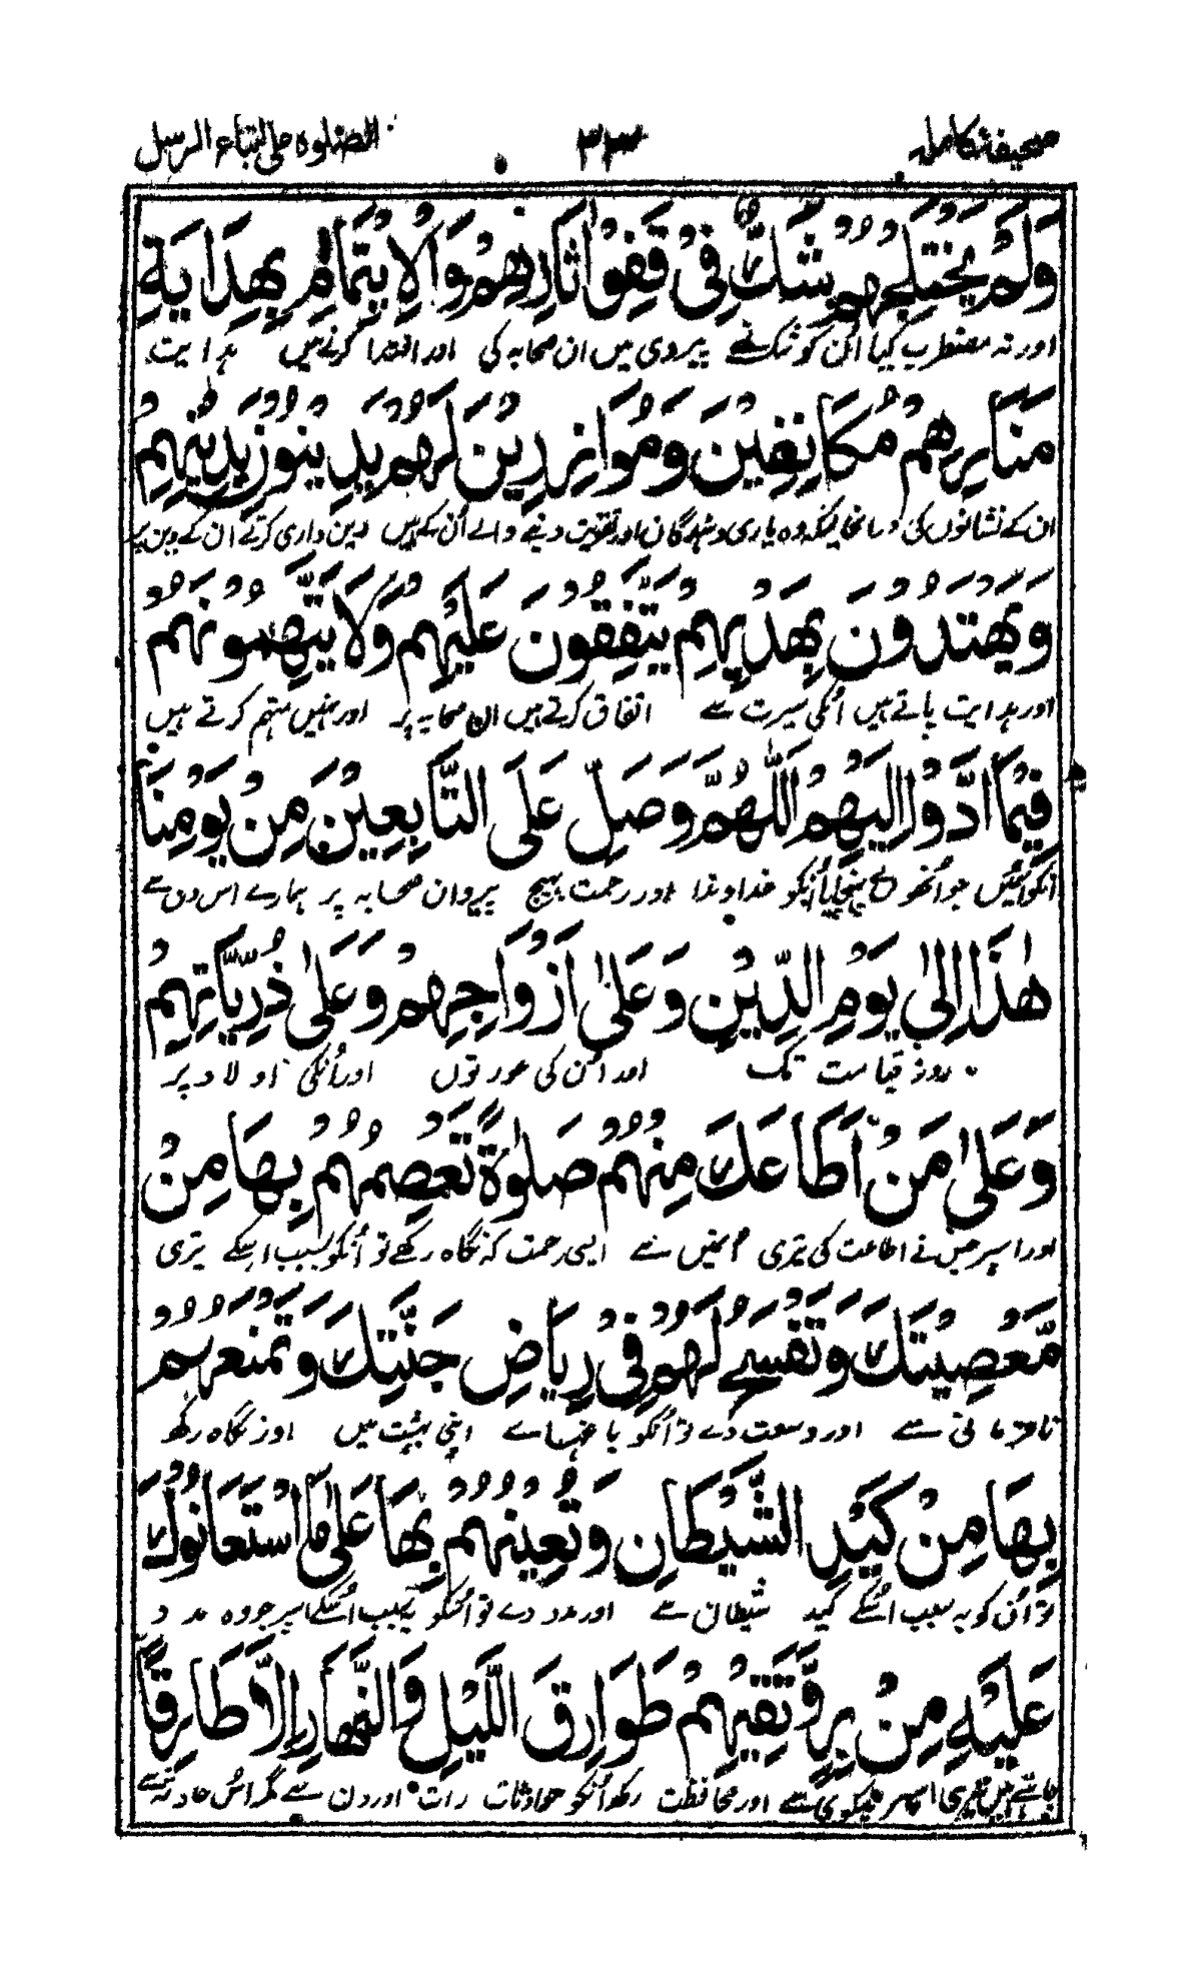 صحیفہ کاملہ ٣٣ الصلوۃ علی اتباع الرسل
وَلَمْ يَخْتَلِجْهُمْ شَكٌّ فِيْ قَفْوِ اٰثَارِهِمْ وَالْاِيْتِمَامِ بِهِدَايَةِ
اور نہ مضطرب کیا انکو شک نے پیروی میں ان صحابہ کی اور اقتدا کرنے میں ہدایت
مَنَارِهِمْ مُكَانِفِيْنَ وَمُوَازِرِيْنَ لَهُمْ يَدِيْنُوْنَ بِدِيْنِهِمْ
ان کے نشانوں کی وہ یاری و اور تقویت دینے والے اُن کے ہیں دین داری کرتے ان کے دین پر
وَيَهْتَدُوْنَ بِهَدْيِهِمْ يَتَّفِقُوْنَ عَلَيْهِمْ وَلَا يَتَّهِمُوْنَهُمْ
اور ہدایت پاتے ہیں اُنکی سیرت سے اتفاق کرتے ہیں ان صحابہ پر اور نہیں متہم کرتے ہیں
فِيْمَا اَدَّوْا اِلَيْهِمْ اَللّٰهُمَّ وَصَلِّ عَلَى التَّابِعِيْنَ مِنْ يَوْمِنَا
جو اُنھوں نے پہنچایا اُنکو خداوندا اور رحمت بھیج پیروان صحابہ پر ہمارے اس دن سے
هٰذَا اِلٰى يَوْمِ الدِّيْنِ وَعَلٰى اَزْوَاجِهِمْ وَعَلٰى ذُرِّيَّاتِهِمْ
روز قیامت تک اور اُن کی عورتوں اور اُنکی اولاد پر
وَعَلٰى مَنْ اَطَاعَكَ مِنْهُمْ صَلٰوةً تَعْصِمُهُمْ بِهَا مِنْ
اور اسپر جس نے اطاعت کی تیری انمیں سے ایسی رحمت کہ نگاہ رکھے تو اُنکو بسبب اسکے تیری
مَّعْصِيَتِكَ وَتَفْسَحُ لَهُمْ فِيْ رِيَاضِ جَنَّتِكَ وَتَمْنَعُهُمْ
نافرمانی سے اور وسعت دے تو اُنکو باغہاے اپنی بہشت میں اور نگاہ رکھ
بِهَا مِنْ كَيْدِ الشَّيْطَانِ وَتُعِيْنُهُمْ بِهَا عَلٰى مَا اسْتَعَانُوْكَ
تو اُن کو بہ سبب اسکے کید شیطان سے اور مدد دے تو اُنکو بسبب اسکے اسپر جو وہ مدد
عَلَيْهِ مِنْ بِرٍّ وَّتَقِيْهِمْ طَوَارِقَ اللَّيْلِ وَالنَّهَارِ اِلَّا طَارِقًا
چاہتے ہیں تیری اسپر نیکوی سے اور محافظت رکھ اُنکو حوادثات رات اور دن سے مگر اُس حادثہ سے